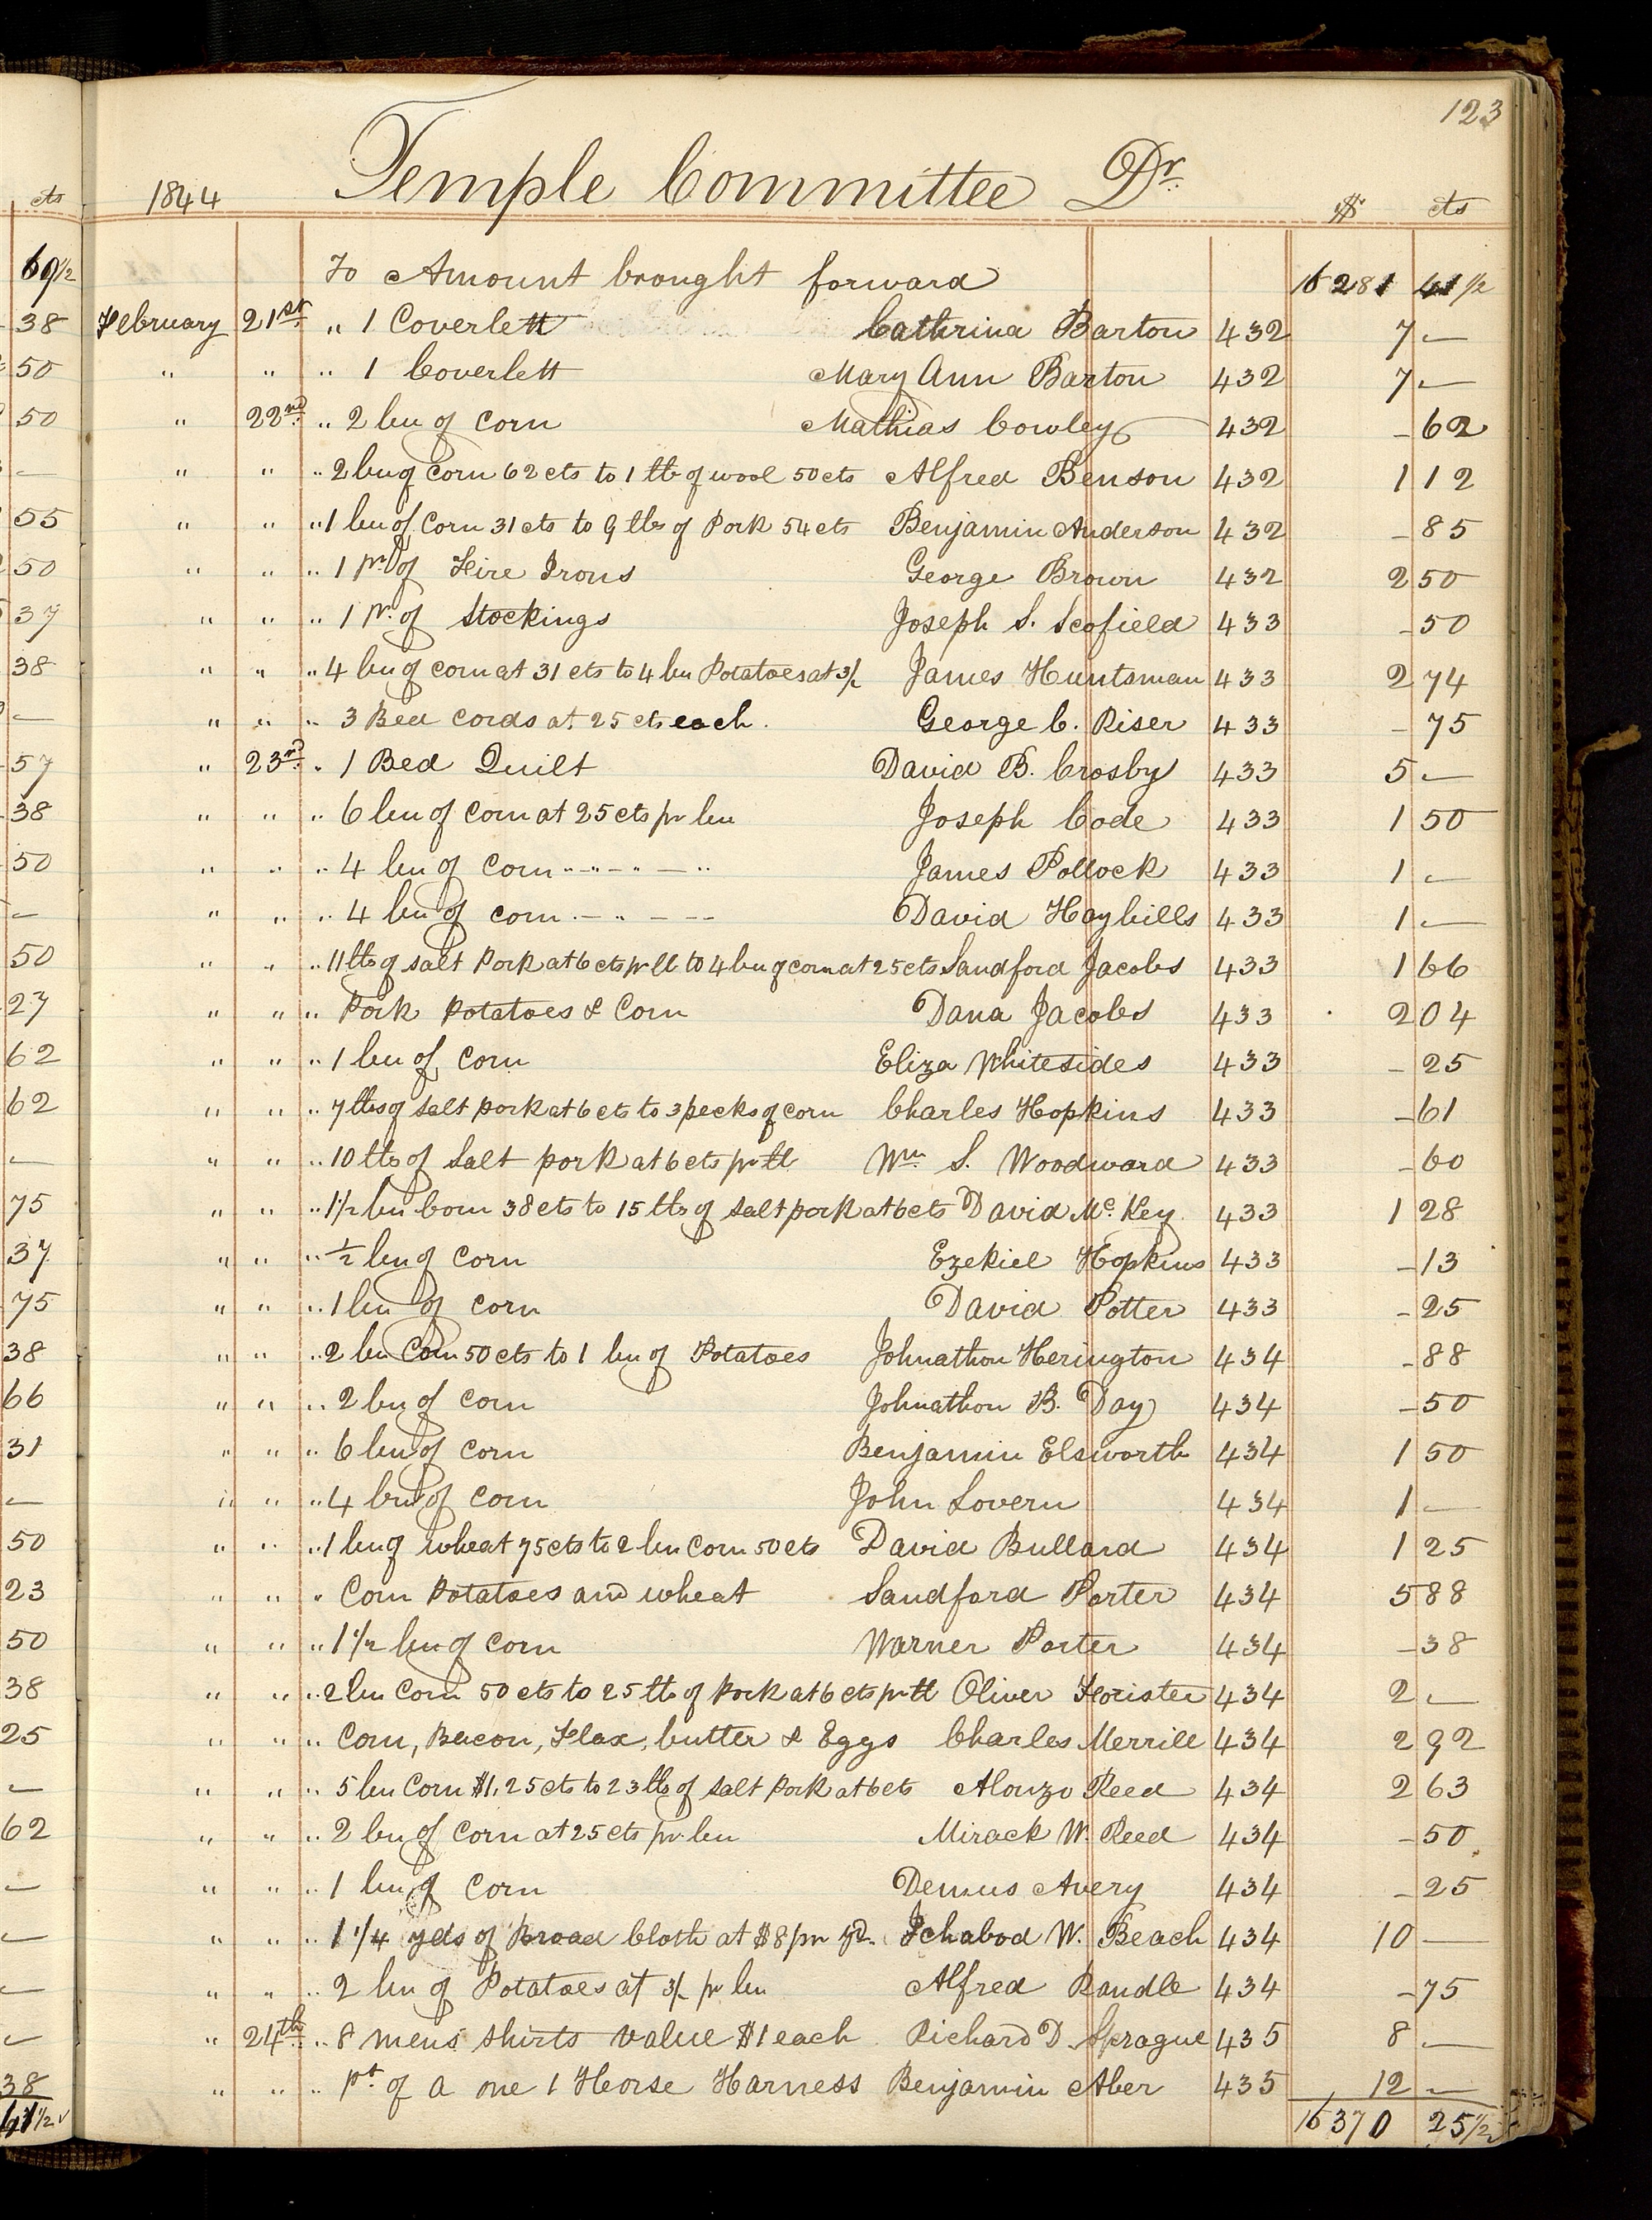 123
1844 Temple Committee Dr. $ cts
To Amount brought forward 16281 41 1/2
February 21st " 1 Coverlett Cathrina Barton 432 7 —
" " " 1 Coverlett Mary Ann Barton 432 7 —
" 22nd " 2 bu of Corn Mathias Cowley 432 – 62
" " " 2 bu of Corn 62 cts to 1 lb of wool 50 cts Alfred Benson 432 1 12
" " " 1 bu of Corn 31 cts to 9 lbs of Pork 54 cts Benjamin Anderson 432 – 85
" " " 1 pr. of Fire Irons George Brown 432 2 50
" " " 1 pr. of Stockings Joseph S. Scofield 433 – 50
" " " 4 bu of corn at 31 cts to 4 bu Potatoes at 3/ James Huntsman 433 2 74
" " " 3 Bed Cords at 25 cts each. George C. Riser 433 – 75
" 23rd " 1 Bed Quilt David B. Crosby 433 5 —
" " " 6 bu of Corn at 25 cts pr bu Joseph Code 433 1 50
" " " 4 bu of Corn " – " — " James Pollock 433 1 —
" " " 4 bu of corn – " – – David Haybills 433 1 —
" " " 11 lbs of salt Pork at 6 cts pr lb to 4 bu of corn at 25 cts Sandford Jacobs 433 1 66
" " " Pork Potatoes & Corn Dana Jacobs 433 2 04
" " " 1 bu of Corn Eliza Whitesides 433 – 25
" " " 7 lbs of Salt pork at 6 cts to 3 pecks of corn Charles Hopkins 433 – 61
" " " 10 lbs of Salt pork at 6 cts pr lb Wm S. Woodward 433 – 60
" " " 1 1/2 bu Corn 38 cts to 15 lbs of salt pork at 6 cts David Mc. Key 433 1 28
" " " 1/2 bu of Corn Ezekiel Hopkins 433 – 13
" " " 1 bu of Corn David Potter 433 – 25
" " " 2 bu Corn 50 cts to 1 bu of Potatoes Johnathon Herington 434 – 88
" " " 2 bu of Corn Johnathon B. Day 434 – 50
" " " 6 bu of Corn Benjamin Elsworth 434 1 50
" " " 4 bu of Corn John Lovern 434 1 —
" " " 1 bu of wheat 75 cts to 2 bu Corn 50 cts David Bullard 434 1 25
" " " Corn Potatoes and wheat Sandford Porter 434 5 88
" " " 1 1/2 bu of Corn Warner Porter 434 – 38
" " " 2 bu Corn 50 cts to 25 lbs of Pork at 6 cts pr lb Oliver Horister 434 2 —
" " " Corn, Bacon, Flax, butter & Eggs Charles Merrill 434 2 92
" " " 5 bu Corn $1.25 cts to 23 lbs of Salt Pork at 6 cts Alonzo Reed 434 2 63
" " " 2 bu of Corn at 25 cts pr. bu Mirack W. Reed 434 – 50
" " " 1 bu of Corn Demus Avery 434 – 25
" " " 1 1/4 yds of Broad Cloth at $8 pr yd. Ichabod W. Beach 434 10 —
" " " 2 bu of Potatoes at 3/ pr bu Alfred Randle 434 – 75
" 24th " 8 mens shirts value $1 each Richard D. Sprague 435 8 —
" " " pt of a one 1 Horse Harness Benjamin Aber 435 12 —
16370 25 1/2
cts
69 1/2
38
50
50
—
55
50
37
38
—
57
38
50
—
50
27
62
62
—
75
37
75
38
66
31
—
50
23
50
38
25
—
62
—
—
—
—
38
41 1/2